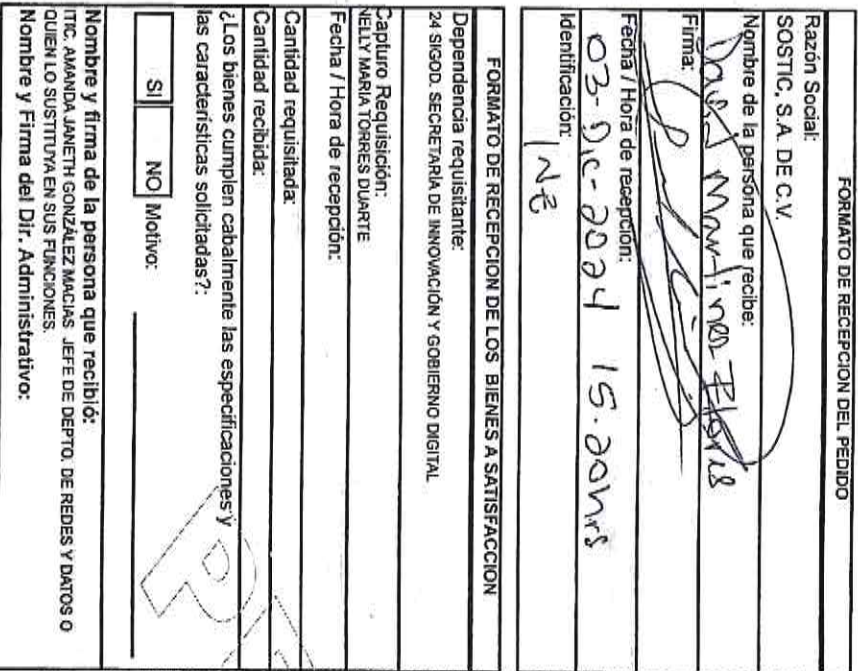 FORMATO DE RECEPCION DEL PEDIDO
Razón Social:
SOSTIC, S.A. DE C.V.
Nombre de la persona que recibe:
David Martinez Flores
Firma:
Fecha / Hora de recepción:
03-Dic-2024 15:20hrs
Identificación: INE
FORMATO DE RECEPCION DE LOS BIENES A SATISFACCION
Dependencia requisitante:
24 SIGOD. SECRETARÍA DE INNOVACIÓN Y GOBIERNO DIGITAL
Capturo Requisición:
NELLY MARIA TORRES DUARTE
Fecha / Hora de recepción:
Cantidad requisitada:
Cantidad recibida:
¿Los bienes cumplen cabalmente las especificaciones y
las características solicitadas?:
SI NO Motivo:
Nombre y firma de la persona que recibió:
ITIC. AMANDA JANETH GONZÁLEZ MACIAS JEFE DE DEPTO. DE REDES Y DATOS O
QUIEN LO SUSTITUYA EN SUS FUNCIONES.
Nombre y Firma del Dir. Administrativo: